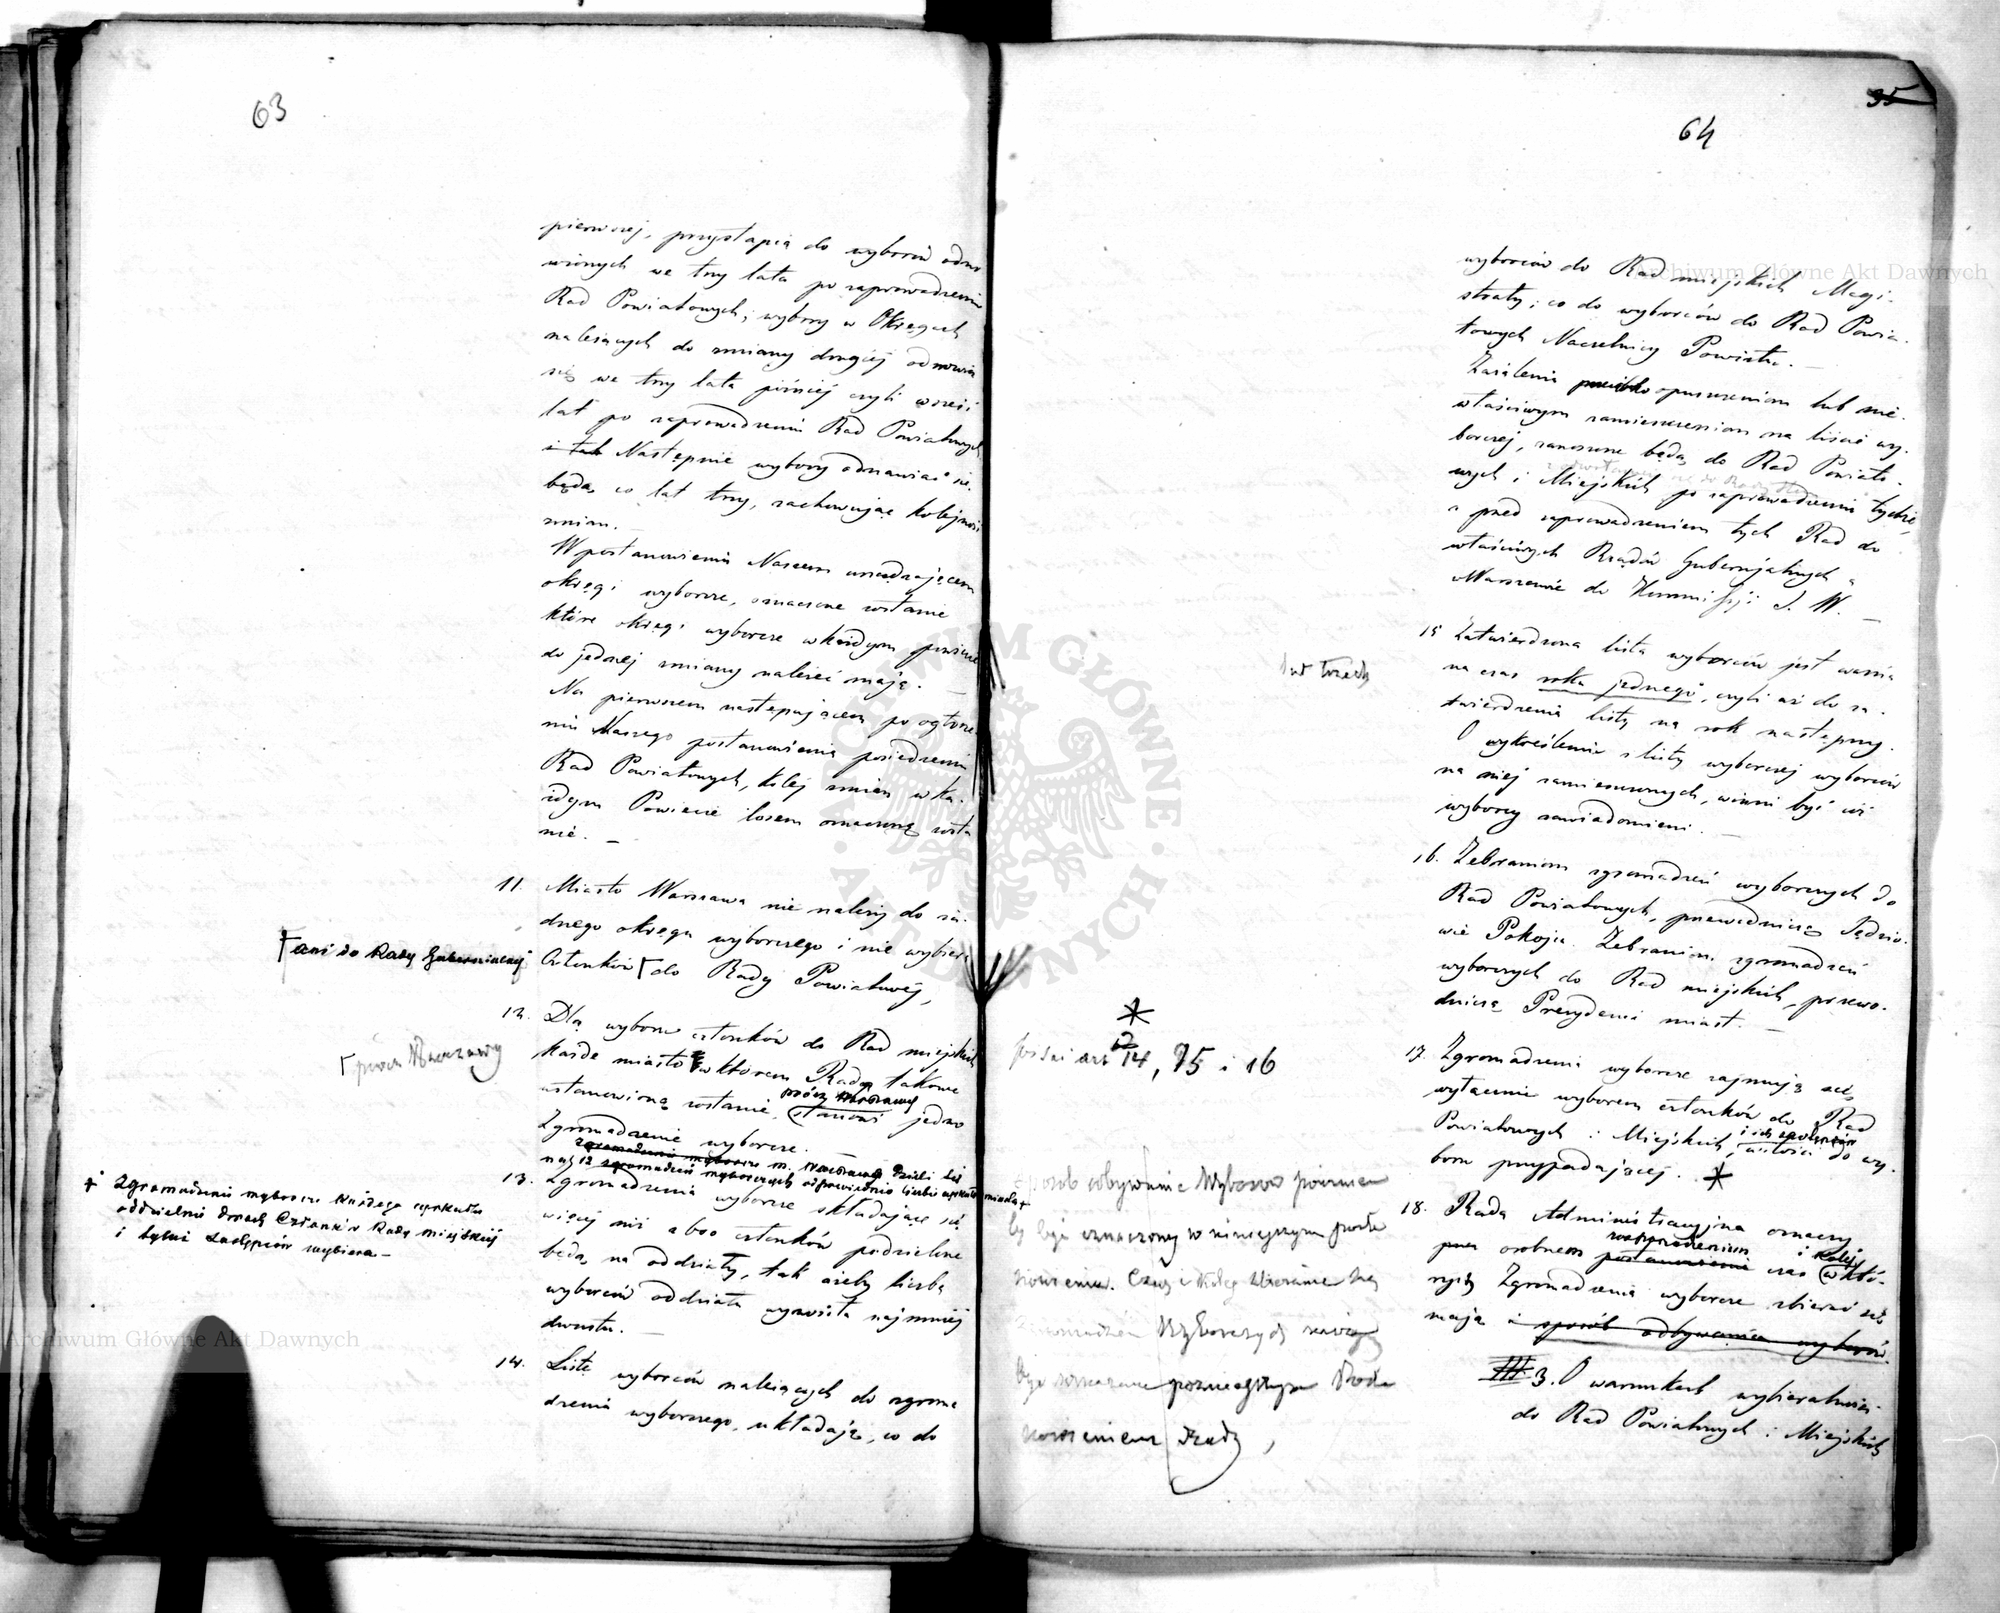 63
pierwszej, przystąpią do wyborów odno
wionych we trzy lata po zaprowadzeniu
Rad Powiatowych; wybory w Okręgach
należących do zmiany drugiej odnowią
się we trzy lata później czyli w sześć
lat po zaprowadzeniu Rad Powiatowych
i tak Następnie wybory odnawiać się
będą co lat trzy, zachowując kolejność
zmian. —
W postanowieniu Naszem urządzającem
okręgi wyborcze, oznaczone zostanie
które okręgi wyborcze w każdym powiecie
do jednej zmiany należeć mają. —
Na pierwszem następującem po ogłosze
niu Naszego postanowienia posiedzeniu
Rad Powiatowych, kolej zmian w ka-
żdym Powiecie losem oznaczoną zosta
nie. —
11. Miasto Warszawa nie należy do ża-
dnego okręgu wyborczego i nie wybiera
Członków do Rady Powiatowej,
ani do Rady Gubernialnej
12. Dla wyboru członków do Rad miejskich
każde miasto w którem Rada takowa
ustanowioną zostanie, stanowi jedno
prócz Warszawy
Zgromadzenie wyborcze.
prócz Warszawy
zgromadzenie wyborcze m. Warszawy dzieli się
na 12 zgromadzeń wyborczych odpowiednio liczbie cyrkułów miasta +
13. Zgromadzenia wyborcze składające się
więcej niż z 600 członków podzielone
będą na oddziały, tak ażeby liczba
wyborców oddziału wynosiła najmniej
dwustu. —
+ Zgromadzenie wyborcze każdego cyrkułu
oddzielnie dwóch Członków Rady miejskiej
i tyluż zastępców wybiera —
14. Listę wyborców należących do zgroma
dzenia wyborczego, układają, co do
35
64
wyborców do Rad miejskich Magi-
straty; co do wyborców do Rad Powia-
towych Naczelnicy Powiatu. —
Zażalenia przeciwko opuszczeniom lub nie-
właściwym zamieszczeniom na liście wy-
borczej, zanoszone będą do Rad Powiato-
wych i Miejskich po zaprowadzeniu tychże,
a przed zaprowadzeniem tych Rad do
właściwych Rządów Gubernjalnych a
Warszawie do Kommissji S. W. —
15 Zatwierdzona lista wyborców jest ważną
na czas roku jednego, czyli aż do za-
twierdzenia listy na rok następny.
O wykreśleniu z listy wyborczej wyborców
na niej zamieszczonych, winni być ciż
wyborcy zawiadomieni. —
lat trzech
16. Zebraniom zgromadzeń wyborczych do
Rad Powiatowych, przewodniczą Sędzio-
wie Pokoju. Zebraniom zgromadzeń
wyborczych do Rad miejskich, przewo-
dniczą Prezydenci miast. —
17. Zgromadzenia wyborcze zajmują się
wyłącznie wyborem członków do Rad
Powiatowych i Miejskich, w ilości do wy-
i ich zastępców
boru przypadającej. *
*
art 14, 15 i 16
sposób odbywania Wyborów powinien
by być oznaczony w niniejszym posta
nowieniu. Czas i kolej zbierania się
zgromadzeń Wyborczych winny
być oznaczone późniejszym Posta
nowieniem Rady,
18. Rada Administracyjna oznaczy
przez osobnem postanowieniem czas w któ-
rozporządzeniem i kolej
rych Zgromadzenia wyborcze zbierać się
mają i sposób odbywania wyborów.
III 3. O warunkach wybieralności
do Rad Powiatowych i Miejskich
Archiwum Główne Akt Dawnych
Archiwum Główne Akt Dawnych
ARCHIWUM GŁÓWNE · AKT DAWNYCH ·